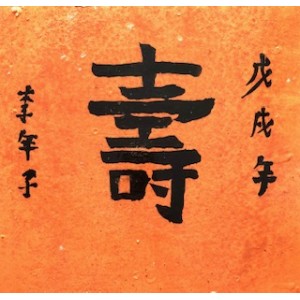 戊戌年
壽
李年子